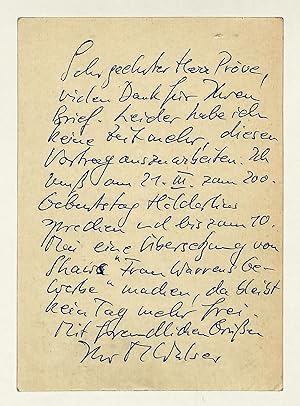 Sehr geehrter Herr Pröve,
vielen Dank für Ihren
Brief. Leider habe ich
keine Zeit mehr, diesen
Vortrag auszuarbeiten. Ich
muß am 21. III. zum 200.
Geburtstag Hölderlins
sprechen und bis zum 10.
Mai eine Übersetzung von
Shaws "Frau Warrens Ge-
werbe" machen, da bleibt
kein Tag mehr frei.
Mit freundlichen Grüßen
Ihr M Walser